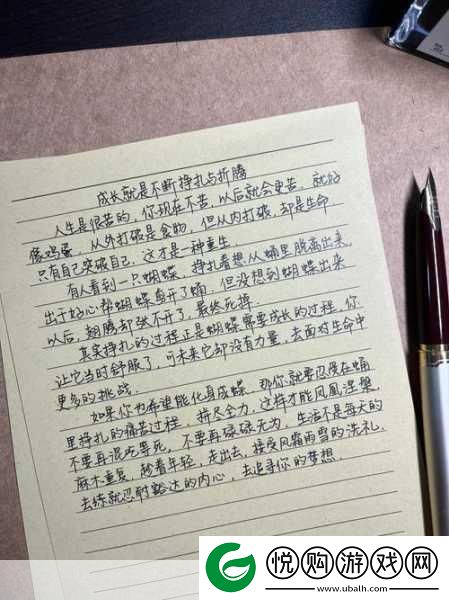 成长就是不断挣扎与折腾
人生是很苦的，你现在不苦，以后就会更苦．就好
像鸡蛋．从外打破是食物，但从内打破，却是生命
只有自己突破自己，这才是一种重生．
有人看到一只蝴蝶，挣扎着想从蛹里脱离出来，
出于好心帮蝴蝶剪开了蛹，但没想到蝴蝶出来
以后，翅膀却张不开了，最终死掉．
其实挣扎的过程正是蝴蝶需要成长的过程，你
让它当时舒服了，可未来它却没有力量，去面对生命中
更多的挑战．
如果你为希望能化身成蝶，那你就要忍受在蛹
里挣扎的痛苦过程，拼尽全力，这样才能凤凰涅槃．
不要再混吃等死，不要再碌碌无为，生活不是每天的
麻木重复，趁着年轻，走出去，接受风霜雨雪的洗礼，
去练就忍耐豁达的内心，去追寻你的梦想．
悦购游戏网
www.ubalh.com